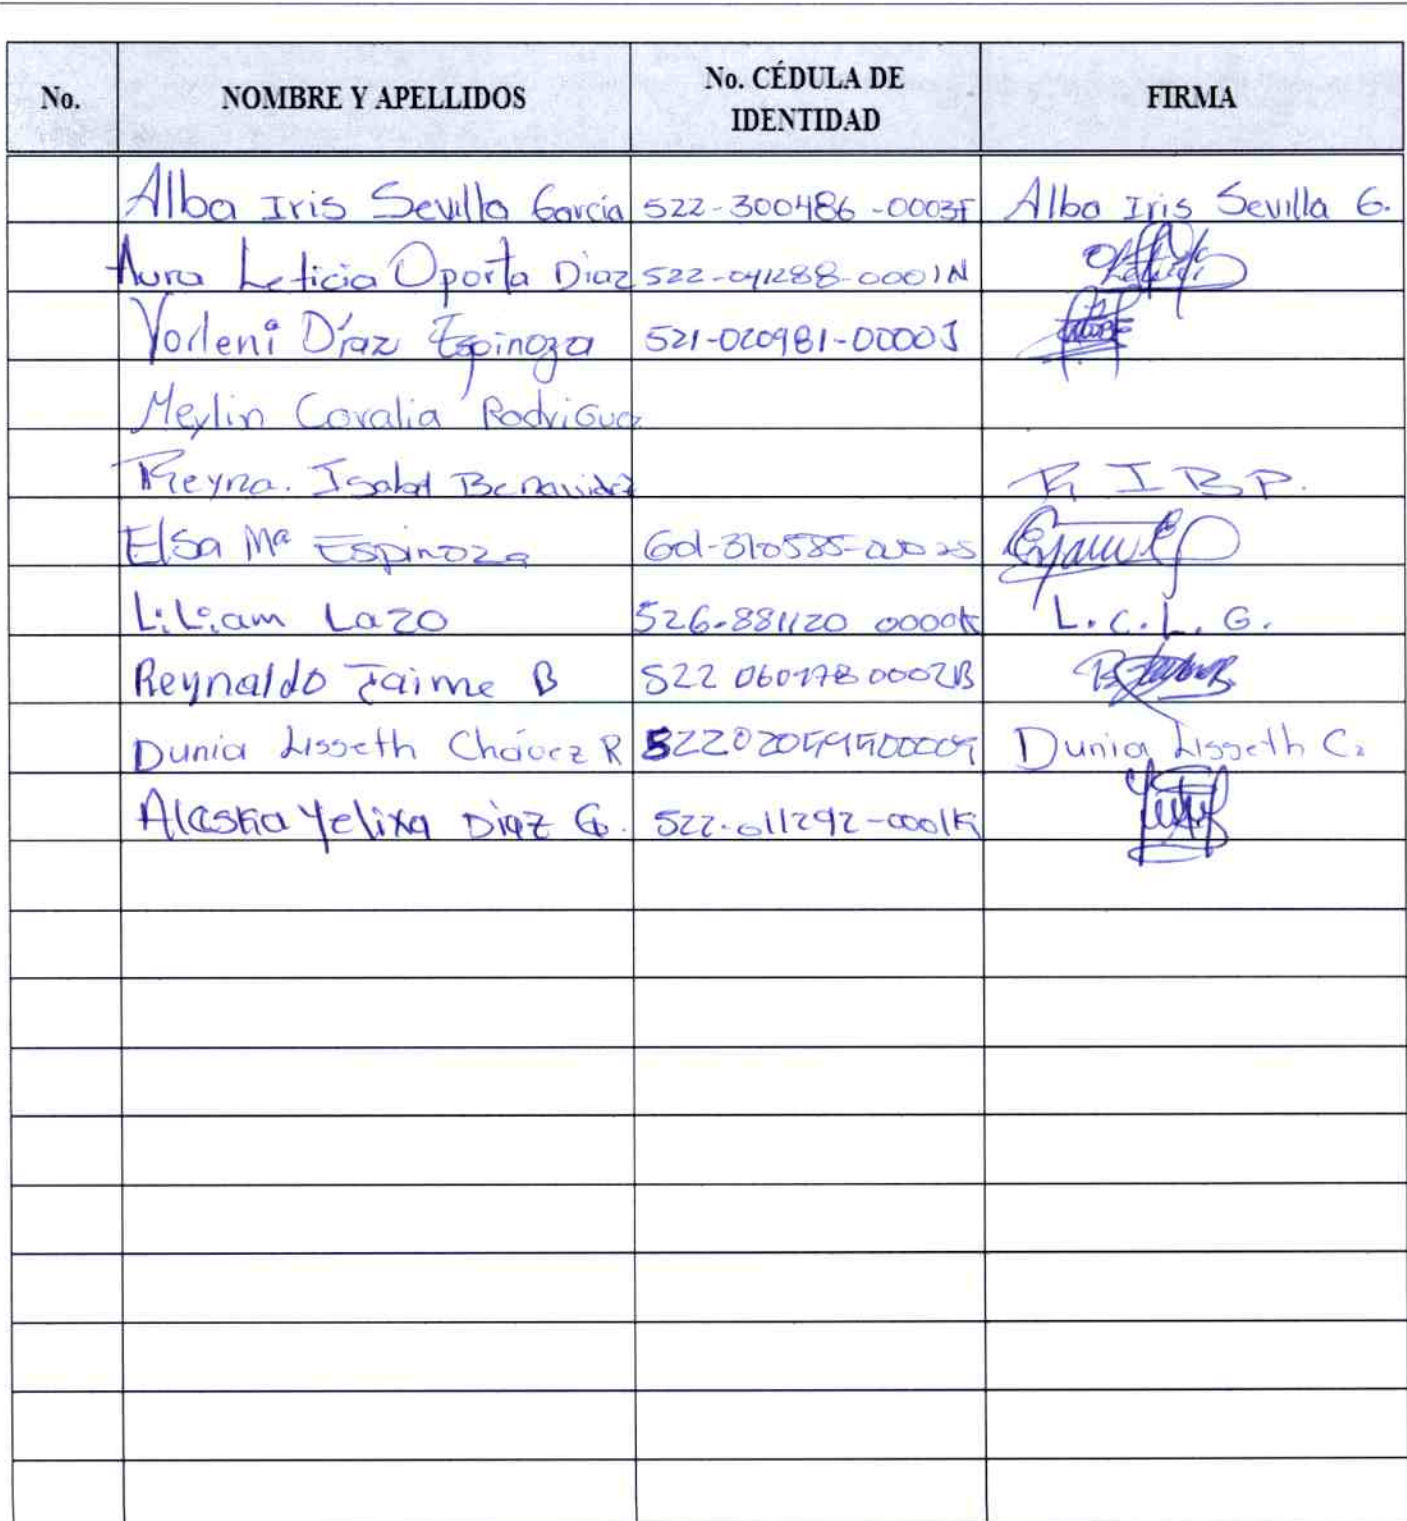 No. NOMBRE Y APELLIDOS No. CÉDULA DE IDENTIDAD FIRMA
Alba Iris Sevilla García 522-300486-0003F Alba Iris Sevilla G.
Aura Leticia Oporta Diaz 522-041288-0001N
Yorleni Díaz Espinoza 521-020981-0000J
Meylin Coralia Rodriguez
Reyna. Isabel Benavidez R I B P.
Elsa Mª Espinoza
Liliam Lazo 526-881120 0000K L.C.L.G.
Reynaldo Jaime B 522 060178 0002B
Dunia Lisseth Chávez R Dunia Lisseth C.
Alaska Yelixa Diaz G. 522-011292-0001K